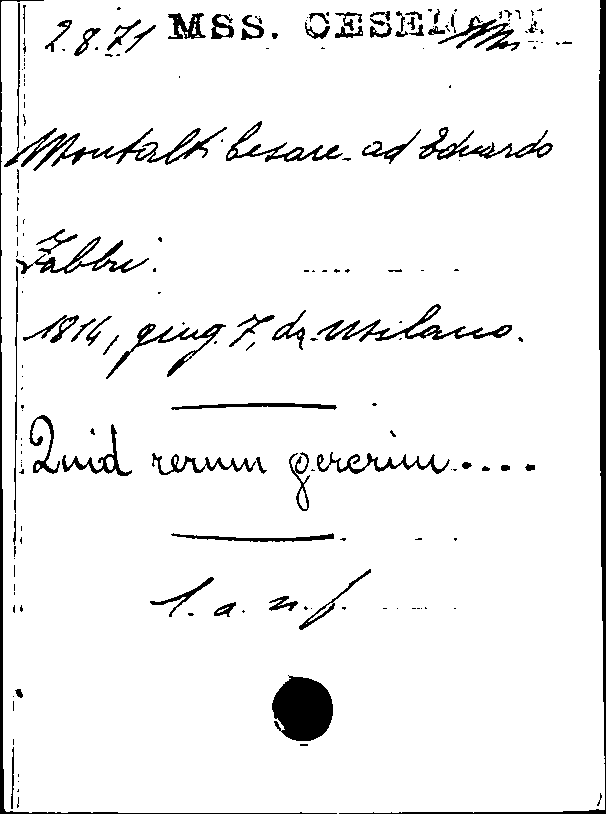 2.8.71 MSS. CESENATI
Montalti Cesare ad Eduardo
Fabbri.
1814, giug. 7, da Milano.
Quid rerum gererim....
l. a. n. f.